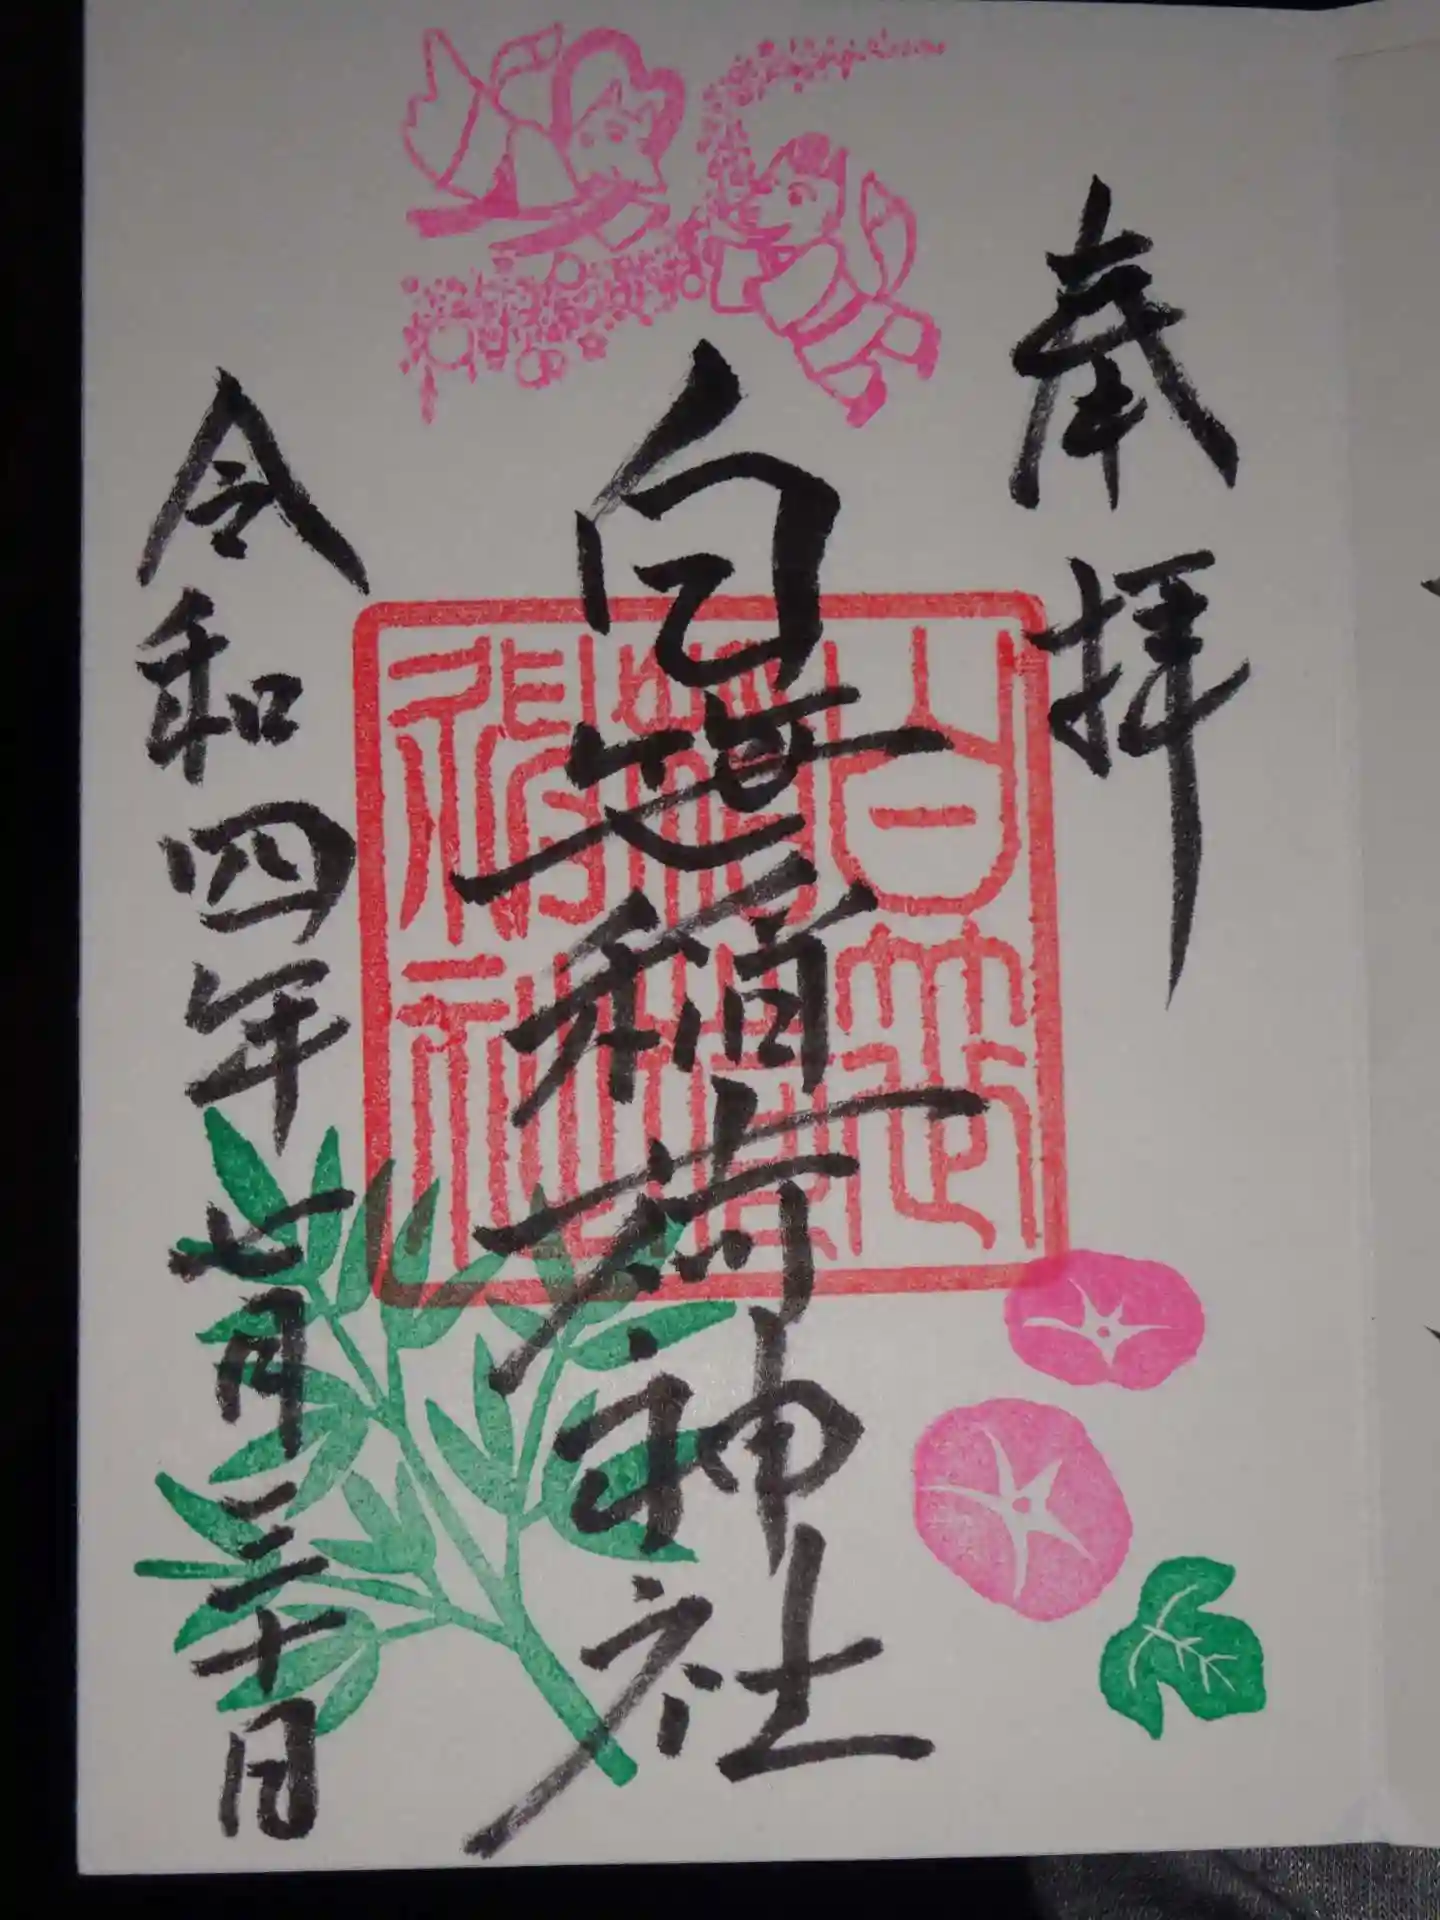 奉拝
白笹稲荷神社
令和四年七月三十日
白笹
稲荷
神社